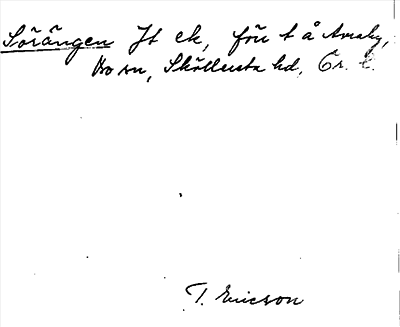 Sörängen Jt ek, förr t å Avesby,
Bo sn, Sköllersta hd, Ör. l.
T. Ericson